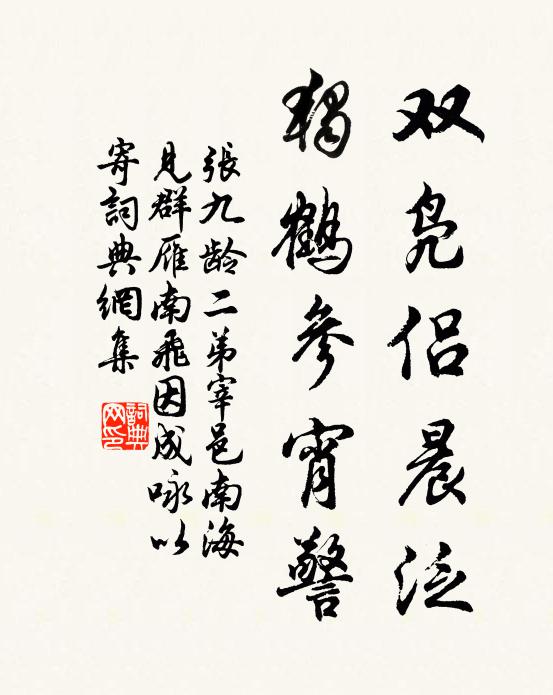 双凫侣晨泛
独鹤参宵警
張九龄二弟宰邑南海
見群雁南飛因成咏以
寄詞典網集
詞典网印